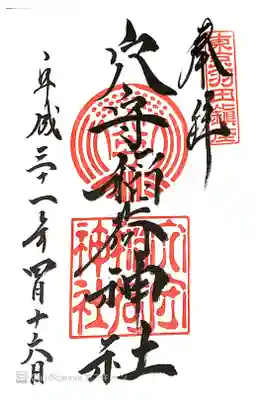 奉拝
東京羽田鎮座
穴守稲荷神社
穴守稲荷神社
平成三十一年四月十六日